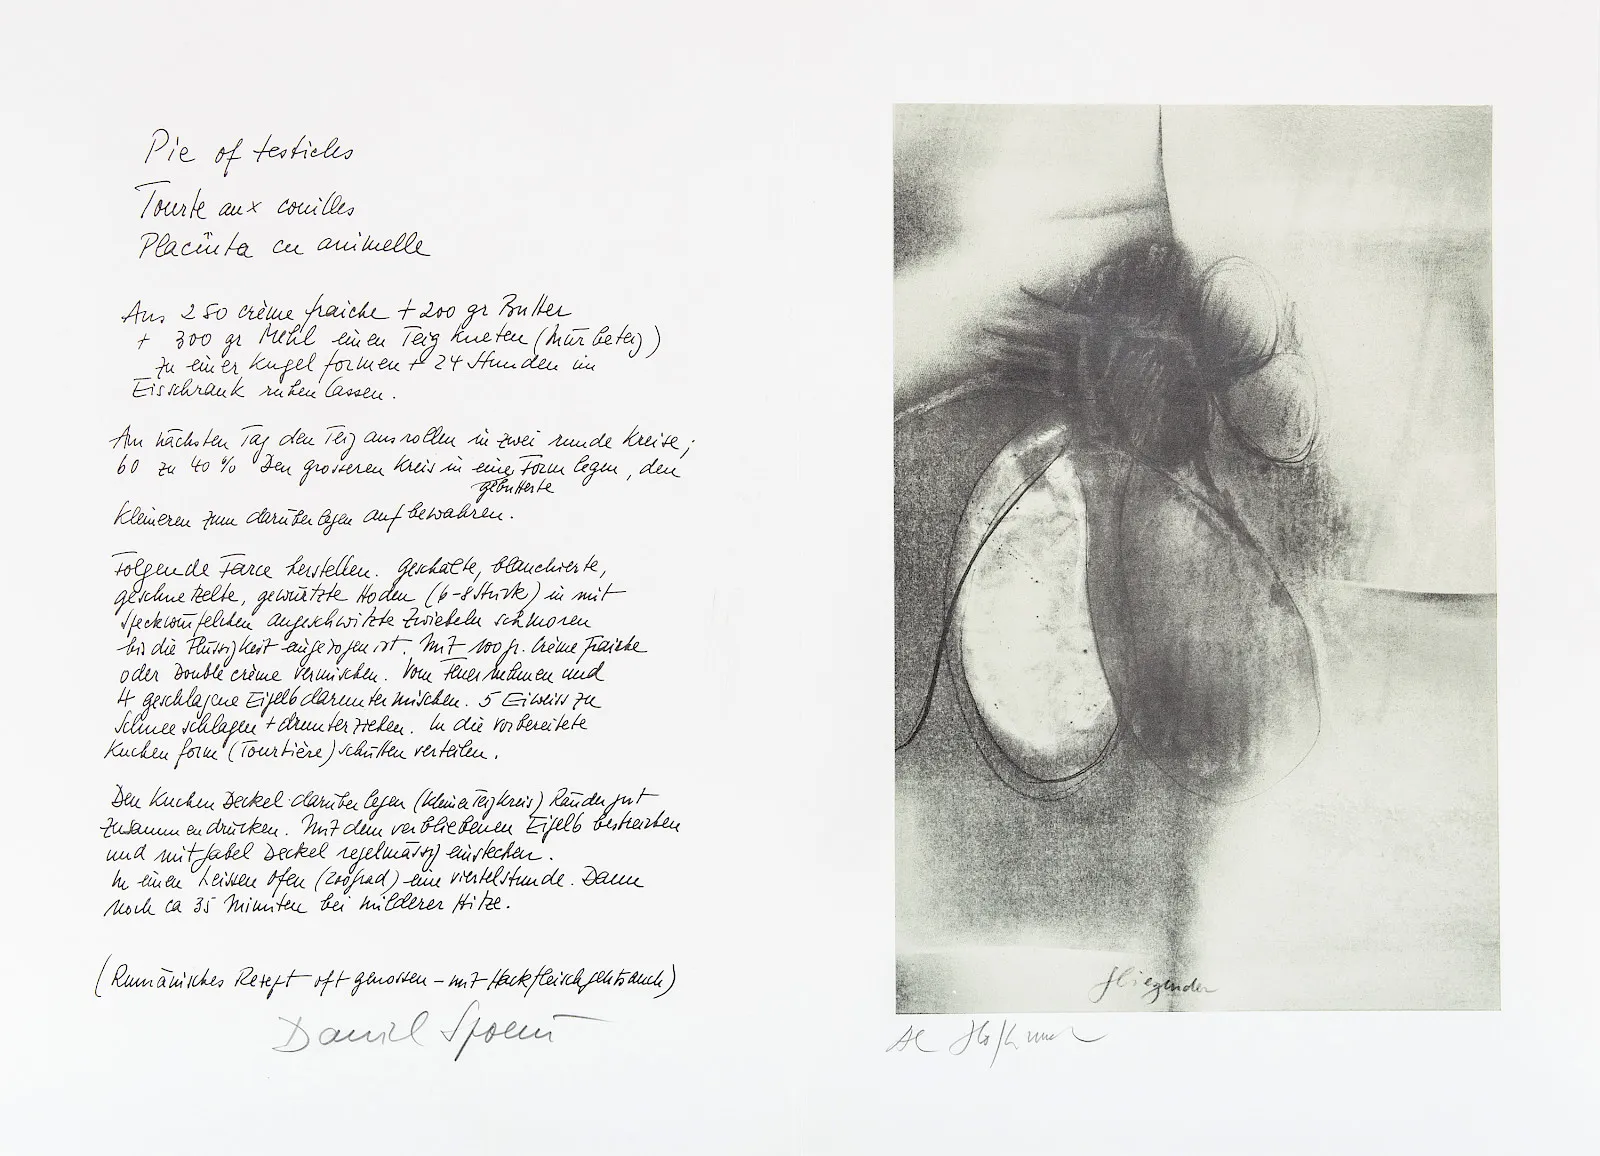 Pie of testicles
Tourte aux couilles
Placinta cu animelle
Aus 250 crème fraiche + 200 gr Butter
+ 300 gr Mehl einen Teig kneten (Mürbeteig)
zu einer Kugel formen + 24 Stunden im
Eisschrank ruhen lassen.
Am nächsten Tag den Teig ausrollen in zwei runde Kreise;
60 zu 40 % Den grosseren Kreis in eine Form legen, den
gebutterte
Kleineren zum darüberlegen aufbewahren.
Folgende Farce herstellen. Geschälte, blanchierte,
geschnetzelte, gewürzte Hoden (6-8 Stück) in mit
Speckwürfelchen angeschwitzte Zwiebeln schmoren
bis die Flüssigkeit eingezogen ist. Mit 100 gr. Crème fraiche
oder Double crème vermischen. Vom Feuer nehmen und
4 geschlagene Eigelb daruntermischen. 5 Eiweiss zu
Schnee schlagen + drunterziehen. In die vorbereitete
Kuchenform (Tourtière) schütten verteilen.
Den Kuchen Deckel darüberlegen (kleiner Teigkreis) Ränder gut
zusammendrücken. Mit dem verbliebenen Eigelb bestreichen
und mit Gabel Deckel regelmässig einstechen.
In einen heissen Ofen (200grad) eine viertelstunde. Dann
noch ca 35 Minuten bei milderer Hitze.
(Rumänisches Rezept oft genossen – mit Hackfleisch gehts auch)
Daniel Spoerri
fliegender